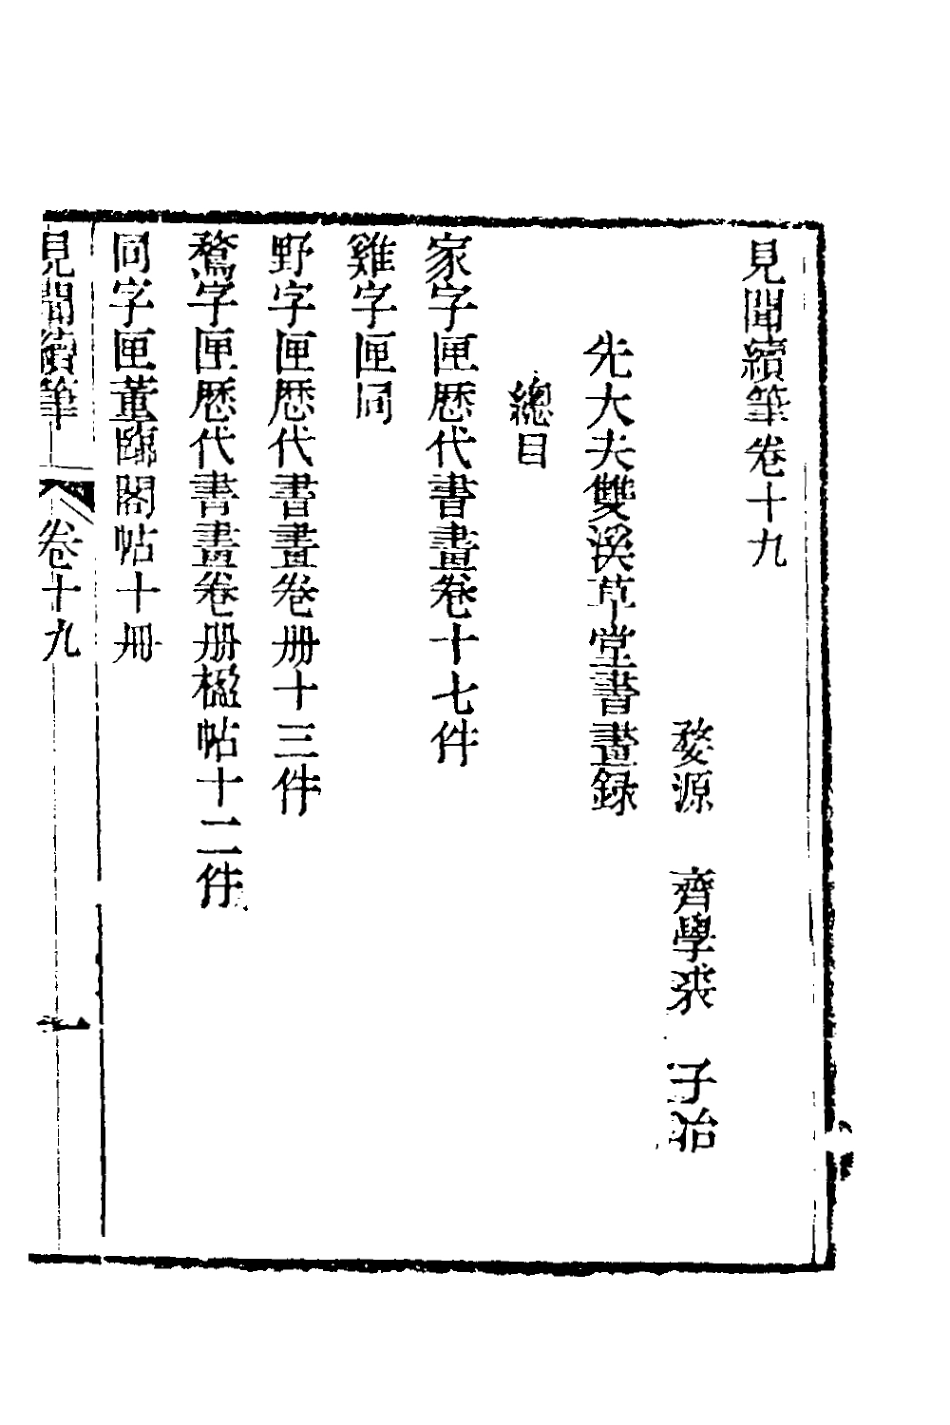 見聞續筆卷十九
婺源　齊學裘　子冶
先大夫雙溪草堂書畫録
總目
家字匣歷代書畫卷十七件
雞字匣同
野字匣歷代書畫卷册十三件
鶩字匣歷代書畫卷册楹帖十二件
同字匣董臨閣帖十册
見聞續筆　卷十九　一